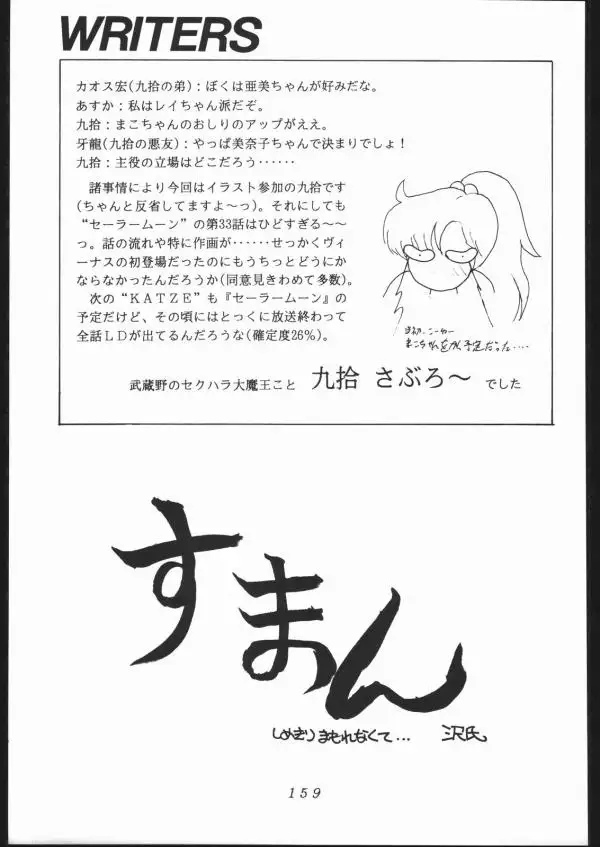 WRITERS
カオス宏(九拾の弟)：ぼくは亜美ちゃんが好みだな。
あすか：私はレイちゃん派だぞ。
九拾：まこちゃんのおしりのアップがええ。
牙龍(九拾の悪友)：やっぱ美奈子ちゃんで決まりでしょ！
九拾：主役の立場はどこだろう‥‥‥
諸事情により今回はイラスト参加の九拾です
(ちゃんと反省してますよ～っ)。それにしても
“セーラームーン”の第33話はひどすぎる～～
っ。話の流れや特に作画が‥‥‥せっかくヴィ
ーナスの初登場だったのにもうちっとどうにか
ならなかったんだろうか(同意見きわめて多数)。
次の“ＫＡＴＺＥ”も『セーラームーン』の
予定だけど、その頃にはとっくに放送終わって
全話ＬＤが出てるんだろうな(確定度26%)。
まこちゃんをかく予定だった‥‥
武蔵野のセクハラ大魔王こと 九拾 さぶろ～ でした
すまん
しめきりまもれなくて… 沢氏
159